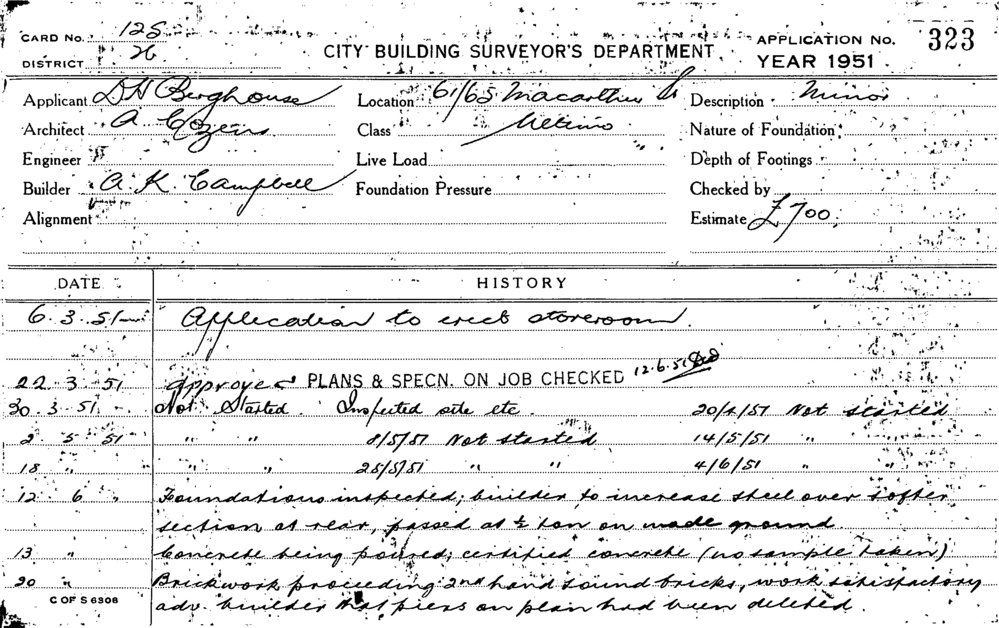 CARD No. 125
DISTRICT H
CITY BUILDING SURVEYOR'S DEPARTMENT
APPLICATION No. 323
YEAR 1951
Applicant D H Berghouse Location 61/65 Macarthur St Description Minor
Architect A Cozens Class Ultimo Nature of Foundation
Engineer Live Load Depth of Footings
Builder A. K. Campbell Foundation Pressure Checked by
Alignment Estimate £700.
DATE HISTORY
6.3.51 Application to erect storeroom.
22.3.51 approved PLANS & SPECN. ON JOB CHECKED 12.6.51
30.3.51. Not Started. Inspected site etc. 20/4/51 Not started
2 5 51 " " 8/5/51 Not started 14/5/51 "
18 " " " 25/5/51 " " 4/6/51 " "
12 6 " Foundations inspected; builder to increase steel over softer
section at rear, passed at ½ ton on made ground.
13 " Concrete being poured; certified concrete (no sample taken)
20 " Brickwork proceeding 2nd hand sound bricks, work satisfactory
adv. builder that piers on plan had been deleted.
C OF S 6306